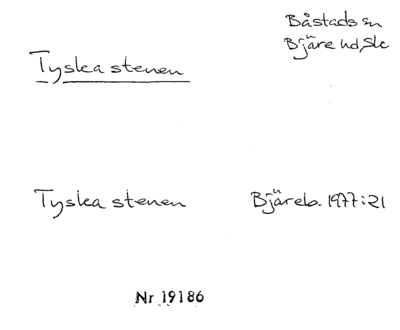 Båstads sn
Bjäre hd, Sk
Tyska stenen
Tyska stenen
Bjäreb. 1977:21
Nr 19186